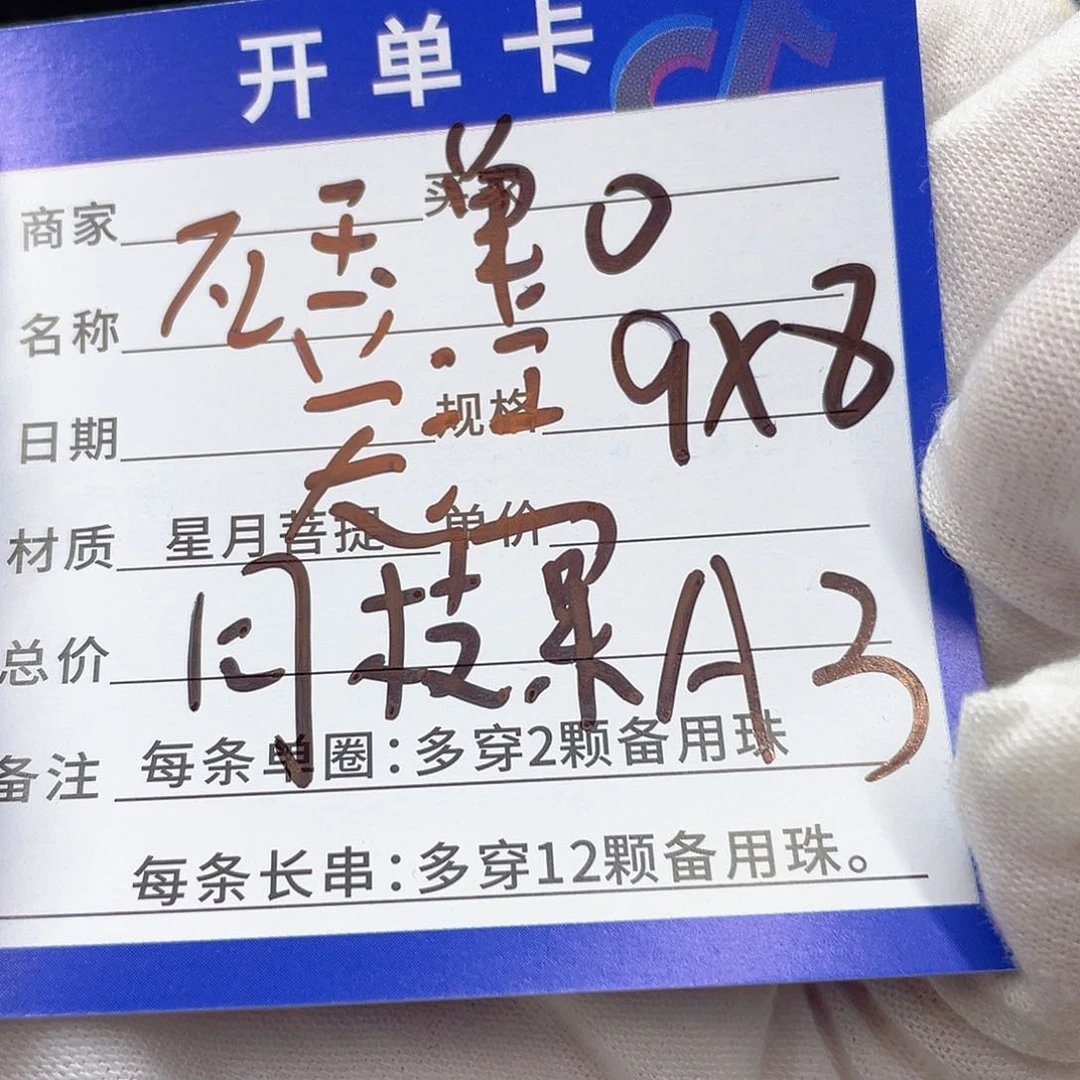 开单卡
商家 买家 0
名称 9X8
日期 规格
材质 星月菩提 单价
同枝果A3
总价
备注 每条单圈:多穿2颗备用珠
每条长串:多穿12颗备用珠。